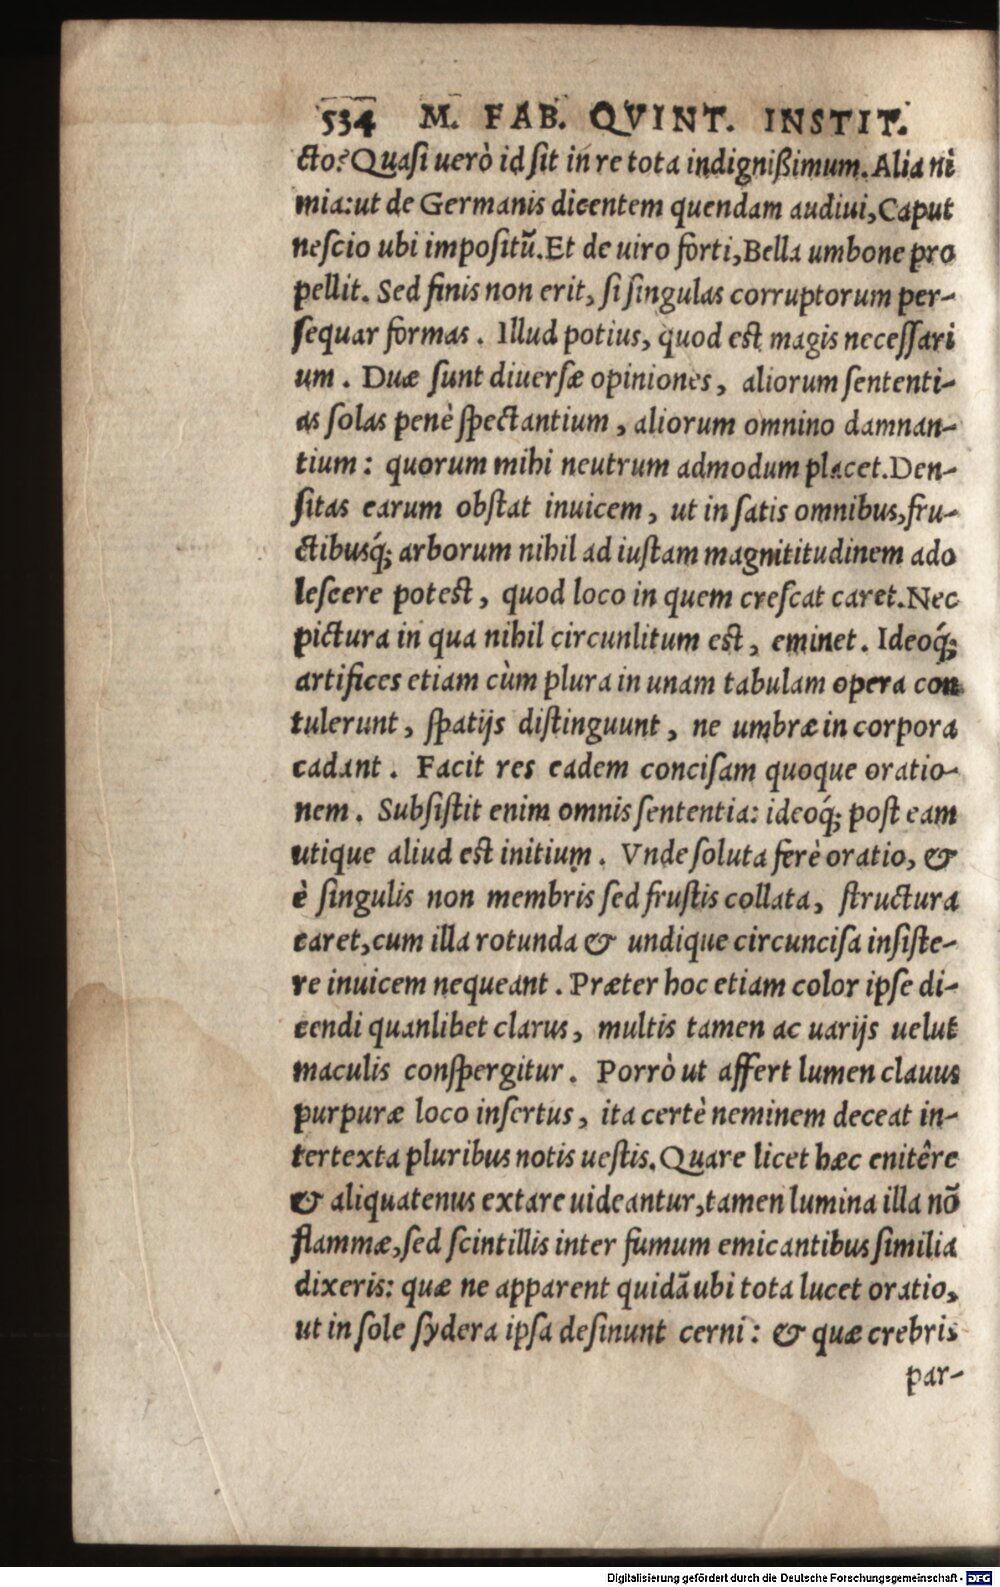 534 M. FAB. QVINT. INSTIT.
cto? Quasi uerò id sit in re tota indignißimum. Alia ni
mia: ut de Germanis dicentem quendam audiui, Caput
nescio ubi impositū. Et de uiro forti, Bella umbone pro
pellit. Sed finis non erit, si singulas corruptorum per-
sequar formas. Illud potius, quod est magis necessari
um. Duæ sunt diuersæ opiniones, aliorum sententi-
as solas penè spectantium, aliorum omnino damnan-
tium: quorum mihi neutrum admodum placet. Den-
sitas earum obstat inuicem, ut in satis omnibus, fru-
ctibusq́; arborum nihil ad iustam magnititudinem ado
lescere potest, quod loco in quem crescat caret. Nec
pictura in qua nihil circunlitum est, eminet. Ideoq́;
artifices etiam cùm plura in unam tabulam opera con
tulerunt, spatijs distinguunt, ne umbræ in corpora
cadant. Facit res eadem concisam quoque oratio-
nem. Subsistit enim omnis sententia: ideoq́; post eam
utique aliud est initium. Vnde soluta ferè oratio, &
è singulis non membris sed frustis collata, structura
caret, cum illa rotunda & undique circuncisa insiste-
re inuicem nequeant. Præter hoc etiam color ipse di-
cendi quanlibet clarus, multis tamen ac uarijs uelut
maculis conspergitur. Porrò ut affert lumen clauus
purpuræ loco insertus, ita certè neminem deceat in-
tertexta pluribus notis uestis. Quare licet hæc enitêre
& aliquatenus extare uideantur, tamen lumina illa nō
flammæ, sed scintillis inter fumum emicantibus similia
dixeris: quæ ne apparent quidā ubi tota lucet oratio,
ut in sole sydera ipsa desinunt cerni: & quæ crebris
par-
Digitalisierung gefördert durch die Deutsche Forschungsgemeinschaft - DFG